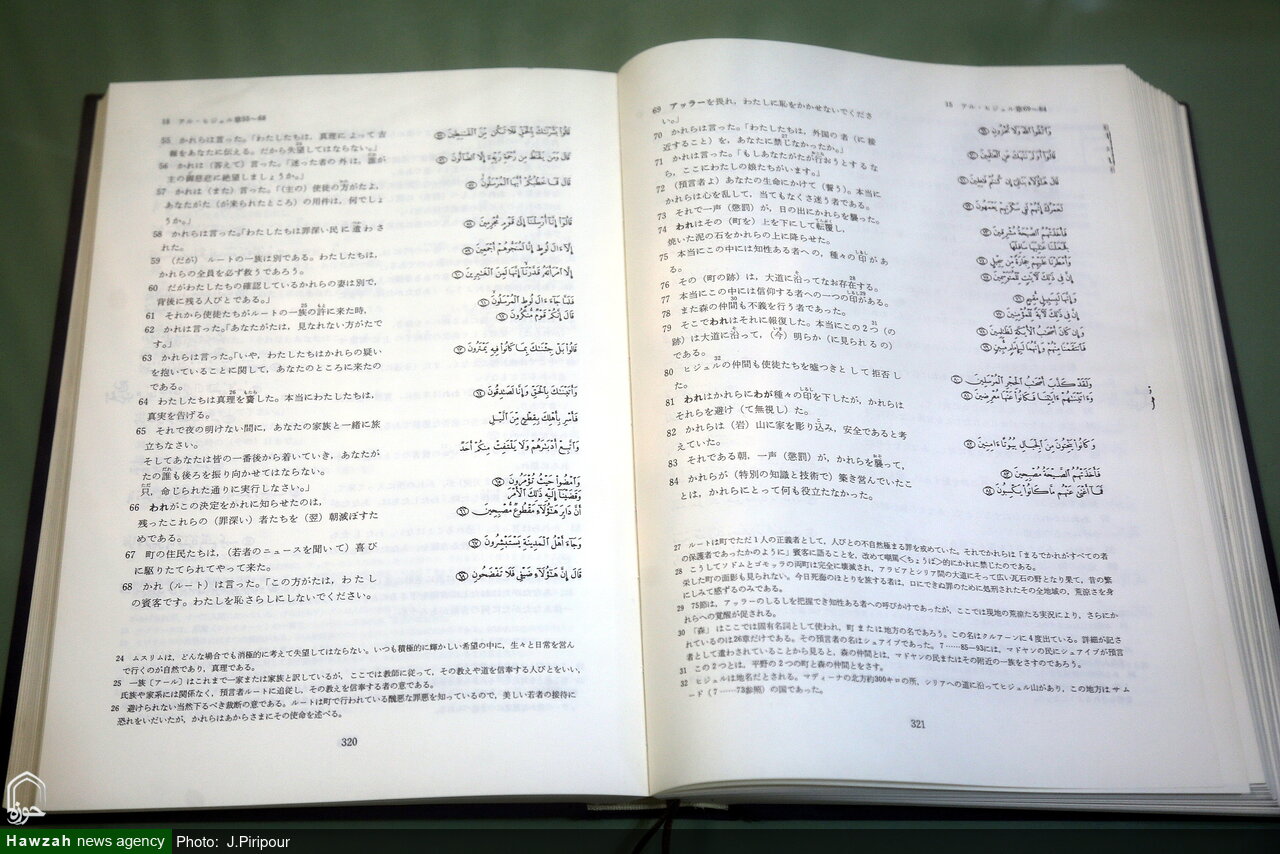 15 アル・ヒジュル章55~68
55 かれらは言った。「わたしたちは,真理によって吉
報をあなたに伝える。だから失望してはならない。」
56 かれは(答えて)言った。「迷った者の外は,誰が
主の御慈悲に絶望しましょうか。」
57 かれは(また)言った。「(主の)使徒の方がたよ,
あなたがた(が来られたところ)の用件は,何でしょ
うか。」
58 かれらは言った。「わたしたちは罪深い民に遣わさ
れた。
59 (だが) ルートの一族は別である。わたしたちは,
かれらの全員を必ず救うであろう。
60 だがわたしたちの確認しているかれらの妻は別で,
背後に残る人びとである。」
61 それから使徒たちがルートの一族の許に来た時,
62 かれは言った。「あなたがたは,見なれない方がたで
す。」
63 かれらは言った。「いや,わたしたちはかれらの疑い
を抱いていることに関して,あなたのところに来たの
である。
64 わたしたちは真理を齎した。本当にわたしたちは,
真実を告げる。
65 それで夜の明けない間に,あなたの家族と一緒に旅
立ちなさい。
そしてあなたは皆の一番後から着いていき,あなたが
たの誰も後ろを振り向かせてはならない。
只,命じられた通りに実行しなさい。」
66 われがこの決定をかれに知らせたのは,
残ったこれらの(罪深い)者たちを(翌)朝滅ぼすた
めである。
67 町の住民たちは,(若者のニュースを聞いて)喜び
に駆りたてられてやって来た。
68 かれ(ルート)は言った。「この方がたは,わたし
の賓客です。わたしを恥さらしにしないでください。
قَالُوا بَشَّرْنَاكَ بِالْحَقِّ فَلَا تَكُن مِّنَ الْقَانِطِينَ
قَالَ وَمَن يَقْنَطُ مِن رَّحْمَةِ رَبِّهِ إِلَّا الضَّالُّونَ
قَالَ فَمَا خَطْبُكُمْ أَيُّهَا الْمُرْسَلُونَ
قَالُوا إِنَّا أُرْسِلْنَا إِلَىٰ قَوْمٍ مُّجْرِمِينَ
إِلَّا آلَ لُوطٍ إِنَّا لَمُنَجُّوهُمْ أَجْمَعِينَ
إِلَّا امْرَأَتَهُ قَدَّرْنَا إِنَّهَا لَمِنَ الْغَابِرِينَ
فَلَمَّا جَاءَ آلَ لُوطٍ الْمُرْسَلُونَ
قَالَ إِنَّكُمْ قَوْمٌ مُّنكَرُونَ
قَالُوا بَلْ جِئْنَاكَ بِمَا كَانُوا فِيهِ يَمْتَرُونَ
وَأَتَيْنَاكَ بِالْحَقِّ وَإِنَّا لَصَادِقُونَ
فَأَسْرِ بِأَهْلِكَ بِقِطْعٍ مِّنَ اللَّيْلِ
وَاتَّبِعْ أَدْبَارَهُمْ وَلَا يَلْتَفِتْ مِنكُمْ أَحَدٌ
وَامْضُوا حَيْثُ تُؤْمَرُونَ
وَقَضَيْنَا إِلَيْهِ ذَٰلِكَ الْأَمْرَ
أَنَّ دَابِرَ هَٰؤُلَاءِ مَقْطُوعٌ مُّصْبِحِينَ
وَجَاءَ أَهْلُ الْمَدِينَةِ يَسْتَبْشِرُونَ
قَالَ إِنَّ هَٰؤُلَاءِ ضَيْفِي فَلَا تَفْضَحُونِ
24 ムスリムは,どんな場合でも消極的に考えて失望してはならない。いつも積極的に輝かしい希望の中に,生々と日常を営ん
で行くのが自然であり,真理である。
25 一族〔アール〕はこれまで一家または家族と訳しているが,ここでは教師に従って,その教えや道を信奉する人びとをいい,
氏族や家系には関係なく,預言者ルートに追従し,その教えを信奉する者の意である。
26 避けられない当然下るべき裁断の意である。ルートは町で行われている醜悪な罪悪を知っているので,美しい若者の接待に
恐れをいだいたが,かれらはあからさまにその使命を述べる。
320
15 アル・ヒジュル章69~84
69 アッラーを畏れ,わたしに恥をかかせないでくださ
い。」
70 かれらは言った。「わたしたちは,外国の者(に接
近すること)を,あなたに禁じなかったか。」
71 かれは言った。「もしあなたがたが行おうとするな
ら,ここにわたしの娘たちがいます。」
72 (預言者よ)あなたの生命にかけて(誓う)。本当に
かれらは心を乱して,当てもなくさ迷う者である。
73 それで一声(懲罰)が,日の出にかれらを襲った。
74 われはその(町を)上を下にして転覆し,
焼いた泥の石をかれらの上に降らせた。
75 本当にこの中には知性ある者への,種々の印があ
る。
76 その(町の跡)は,大道に沿ってなお存在する。
77 本当にこの中には信仰する者への一つの印がある。
78 また森の仲間も不義を行う者であった。
79 そこでわれはそれに報復した。本当にこの2つ(の
跡)は大道に沿って,(今)明らか(に見られるの)
である。
80 ヒジュルの仲間も使徒たちを嘘つきとして拒否し
た。
81 われはかれらにわが種々の印を下したが,かれらは
それらを避け(て無視し)た。
82 かれらは(岩)山に家を彫り込み,安全であると考
えていた。
83 それである朝,一声(懲罰)が,かれらを襲って,
84 かれらが(特別の知識と技術で)築き営んでいたこ
とは,かれらにとって何も役立たなかった。
وَاتَّقُوا اللَّهَ وَلَا تُخْزُونِ
قَالُوا أَوَلَمْ نَنْهَكَ عَنِ الْعَالَمِينَ
قَالَ هَٰؤُلَاءِ بَنَاتِي إِن كُنتُمْ فَاعِلِينَ
لَعَمْرُكَ إِنَّهُمْ لَفِي سَكْرَتِهِمْ يَعْمَهُونَ
فَأَخَذَتْهُمُ الصَّيْحَةُ مُشْرِقِينَ
فَجَعَلْنَا عَالِيَهَا سَافِلَهَا
وَأَمْطَرْنَا عَلَيْهِمْ حِجَارَةً مِّن سِجِّيلٍ
إِنَّ فِي ذَٰلِكَ لَآيَاتٍ لِّلْمُتَوَسِّمِينَ
وَإِنَّهَا لَبِسَبِيلٍ مُّقِيمٍ
إِنَّ فِي ذَٰلِكَ لَآيَةً لِّلْمُؤْمِنِينَ
وَإِن كَانَ أَصْحَابُ الْأَيْكَةِ لَظَالِمِينَ
فَانتَقَمْنَا مِنْهُمْ وَإِنَّهُمَا لَبِإِمَامٍ مُّبِينٍ
وَلَقَدْ كَذَّبَ أَصْحَابُ الْحِجْرِ الْمُرْسَلِينَ
وَآتَيْنَاهُمْ آيَاتِنَا فَكَانُوا عَنْهَا مُعْرِضِينَ
وَكَانُوا يَنْحِتُونَ مِنَ الْجِبَالِ بُيُوتًا آمِنِينَ
فَأَخَذَتْهُمُ الصَّيْحَةُ مُصْبِحِينَ
فَمَا أَغْنَىٰ عَنْهُم مَّا كَانُوا يَكْسِبُونَ
27 ルートは町でただ1人の正義者として,人びとの不自然極まる罪を攻めていた。それでかれらは「まるでかれがすべての者
の保護者であったかのように」賓客に語ることを,改めて嘲罵くちょうばつ的にかれに禁じたのである。
28 こうしてソドムとゴモッラの両町は完全に壊滅され,アラビアとシリア間の大道にそって広い瓦石の野となり果て,昔の繁
栄した町の面影も見られない。今日死海のほとりを旅する者は,口にできぬ罪のために処刑されたその全地域の,荒涼さを身
にしみて感ずるのみである。
29 75節は,アッラーのしるしを把握でき知性ある者への呼びかけであったが,ここでは現地の荒涼たる実況により,さらにか
れらへの覚醒が促される。
30 「森」はここでは固有名詞として使われ,町または地方の名であろう。この名はクルアーンに4度出ている。詳細が記さ
れているのは26章だけである。その預言者の名はシュアイブであった。7……85―93には,マドヤンの民にシュアイブが預言
者として遣わされていることから見ると,森の仲間とは,マドヤンの民またはその附近の一族をさすのであろう。
31 この2つとは,平野の2つの町と森の仲間とをさす。
32 ヒジュルは地名だとされる。マディーナの北方約300キロの所,シリアへの道に沿ってヒジュル山があり,この地方はサム
ード(7……73参照)の国であった。
321
حوزه
Hawzah news agency
Photo: J.Piripour